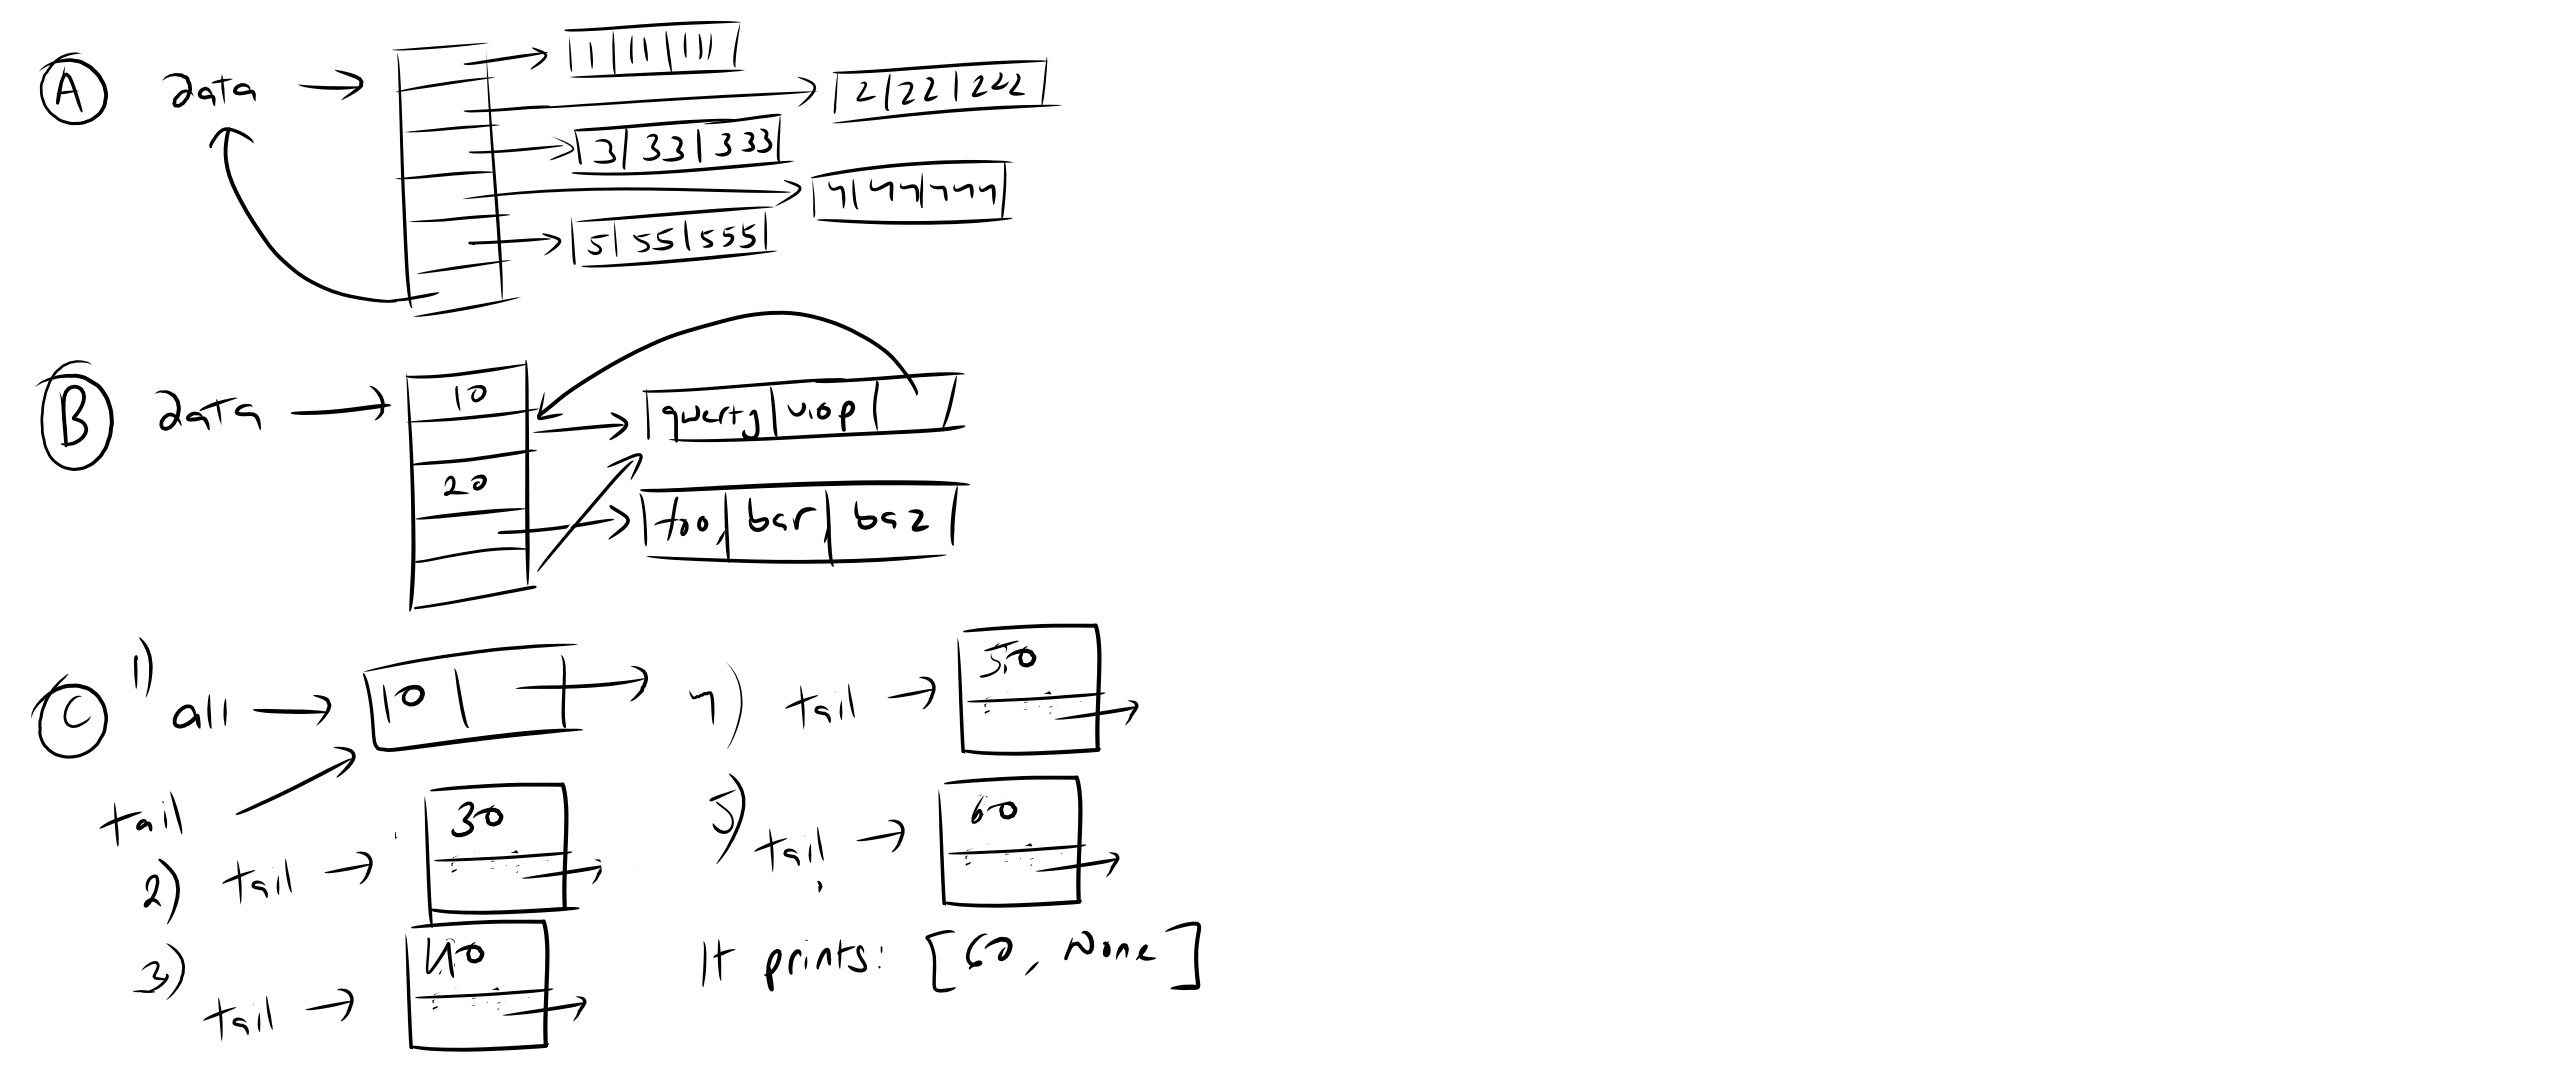 A data
1 11 111
2 22 222
3 33 333
4 44 444
5 55 555
B data
10
20
qwerty uiop
foo, bar, baz
C 1) all 10
tail
2) tail 30
3) tail 40
4) tail 50
5) tail 60
It prints: [60, None]